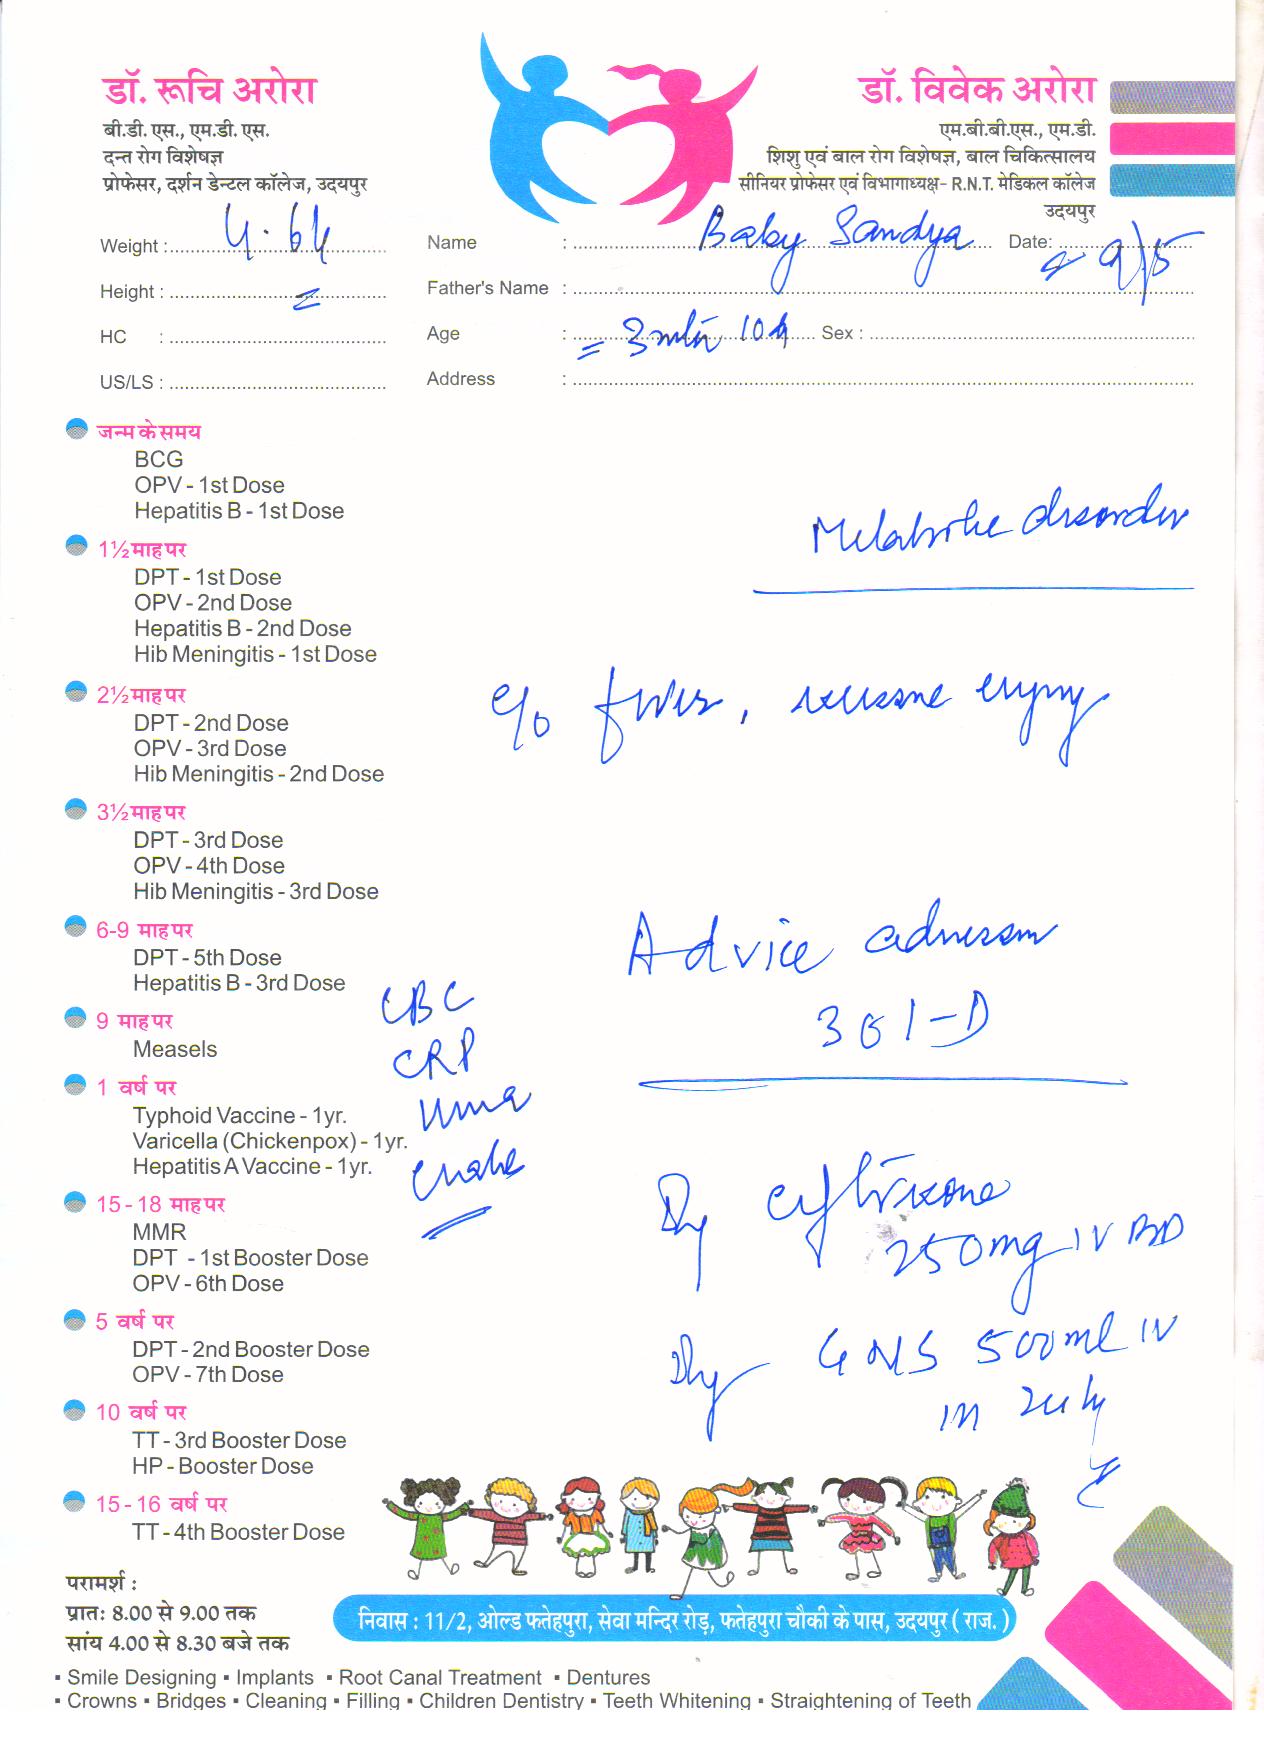 डॉ. रूचि अरोरा
बी.डी. एस., एम.डी. एस.
दन्त रोग विशेषज्ञ
प्रोफेसर, दर्शन डेन्टल कॉलेज, उदयपुर
डॉ. विवेक अरोरा
एम.बी.बी.एस., एम.डी.
शिशु एवं बाल रोग विशेषज्ञ, बाल चिकित्सालय
सीनियर प्रोफेसर एवं विभागाध्यक्ष- R.N.T. मेडिकल कॉलेज
उदयपुर
Weight : 4.64 Name : Baby Sandya Date: 9/5
Height : Father's Name :
HC : Age : 3 mth Sex :
US/LS : Address :
जन्म के समय
BCG
OPV - 1st Dose
Hepatitis B - 1st Dose
Metabolic disorder
1½ माह पर
DPT - 1st Dose
OPV - 2nd Dose
Hepatitis B - 2nd Dose
Hib Meningitis - 1st Dose
2½ माह पर
DPT - 2nd Dose
OPV - 3rd Dose
Hib Meningitis - 2nd Dose
c/o fever, crying
3½ माह पर
DPT - 3rd Dose
OPV - 4th Dose
Hib Meningitis - 3rd Dose
6-9 माह पर
DPT - 5th Dose
Hepatitis B - 3rd Dose
Advice admission
301-D
9 माह पर
Measels
CBC
CRP
1 वर्ष पर
Typhoid Vaccine - 1yr.
Varicella (Chickenpox) - 1yr.
Hepatitis A Vaccine - 1yr.
15 - 18 माह पर
MMR
DPT - 1st Booster Dose
OPV - 6th Dose
Inj ceftrixone
250mg IV BD
5 वर्ष पर
DPT - 2nd Booster Dose
OPV - 7th Dose
Inj GNS 500ml IV
in
10 वर्ष पर
TT - 3rd Booster Dose
HP - Booster Dose
15 - 16 वर्ष पर
TT - 4th Booster Dose
परामर्श :
प्रातः 8.00 से 9.00 तक
सांय 4.00 से 8.30 बजे तक
निवास : 11/2, ओल्ड फतेहपुरा, सेवा मन्दिर रोड़, फतेहपुरा चौकी के पास, उदयपुर ( राज. )
▪ Smile Designing ▪ Implants ▪ Root Canal Treatment ▪ Dentures
▪ Crowns ▪ Bridges ▪ Cleaning ▪ Filling ▪ Children Dentistry ▪ Teeth Whitening ▪ Straightening of Teeth